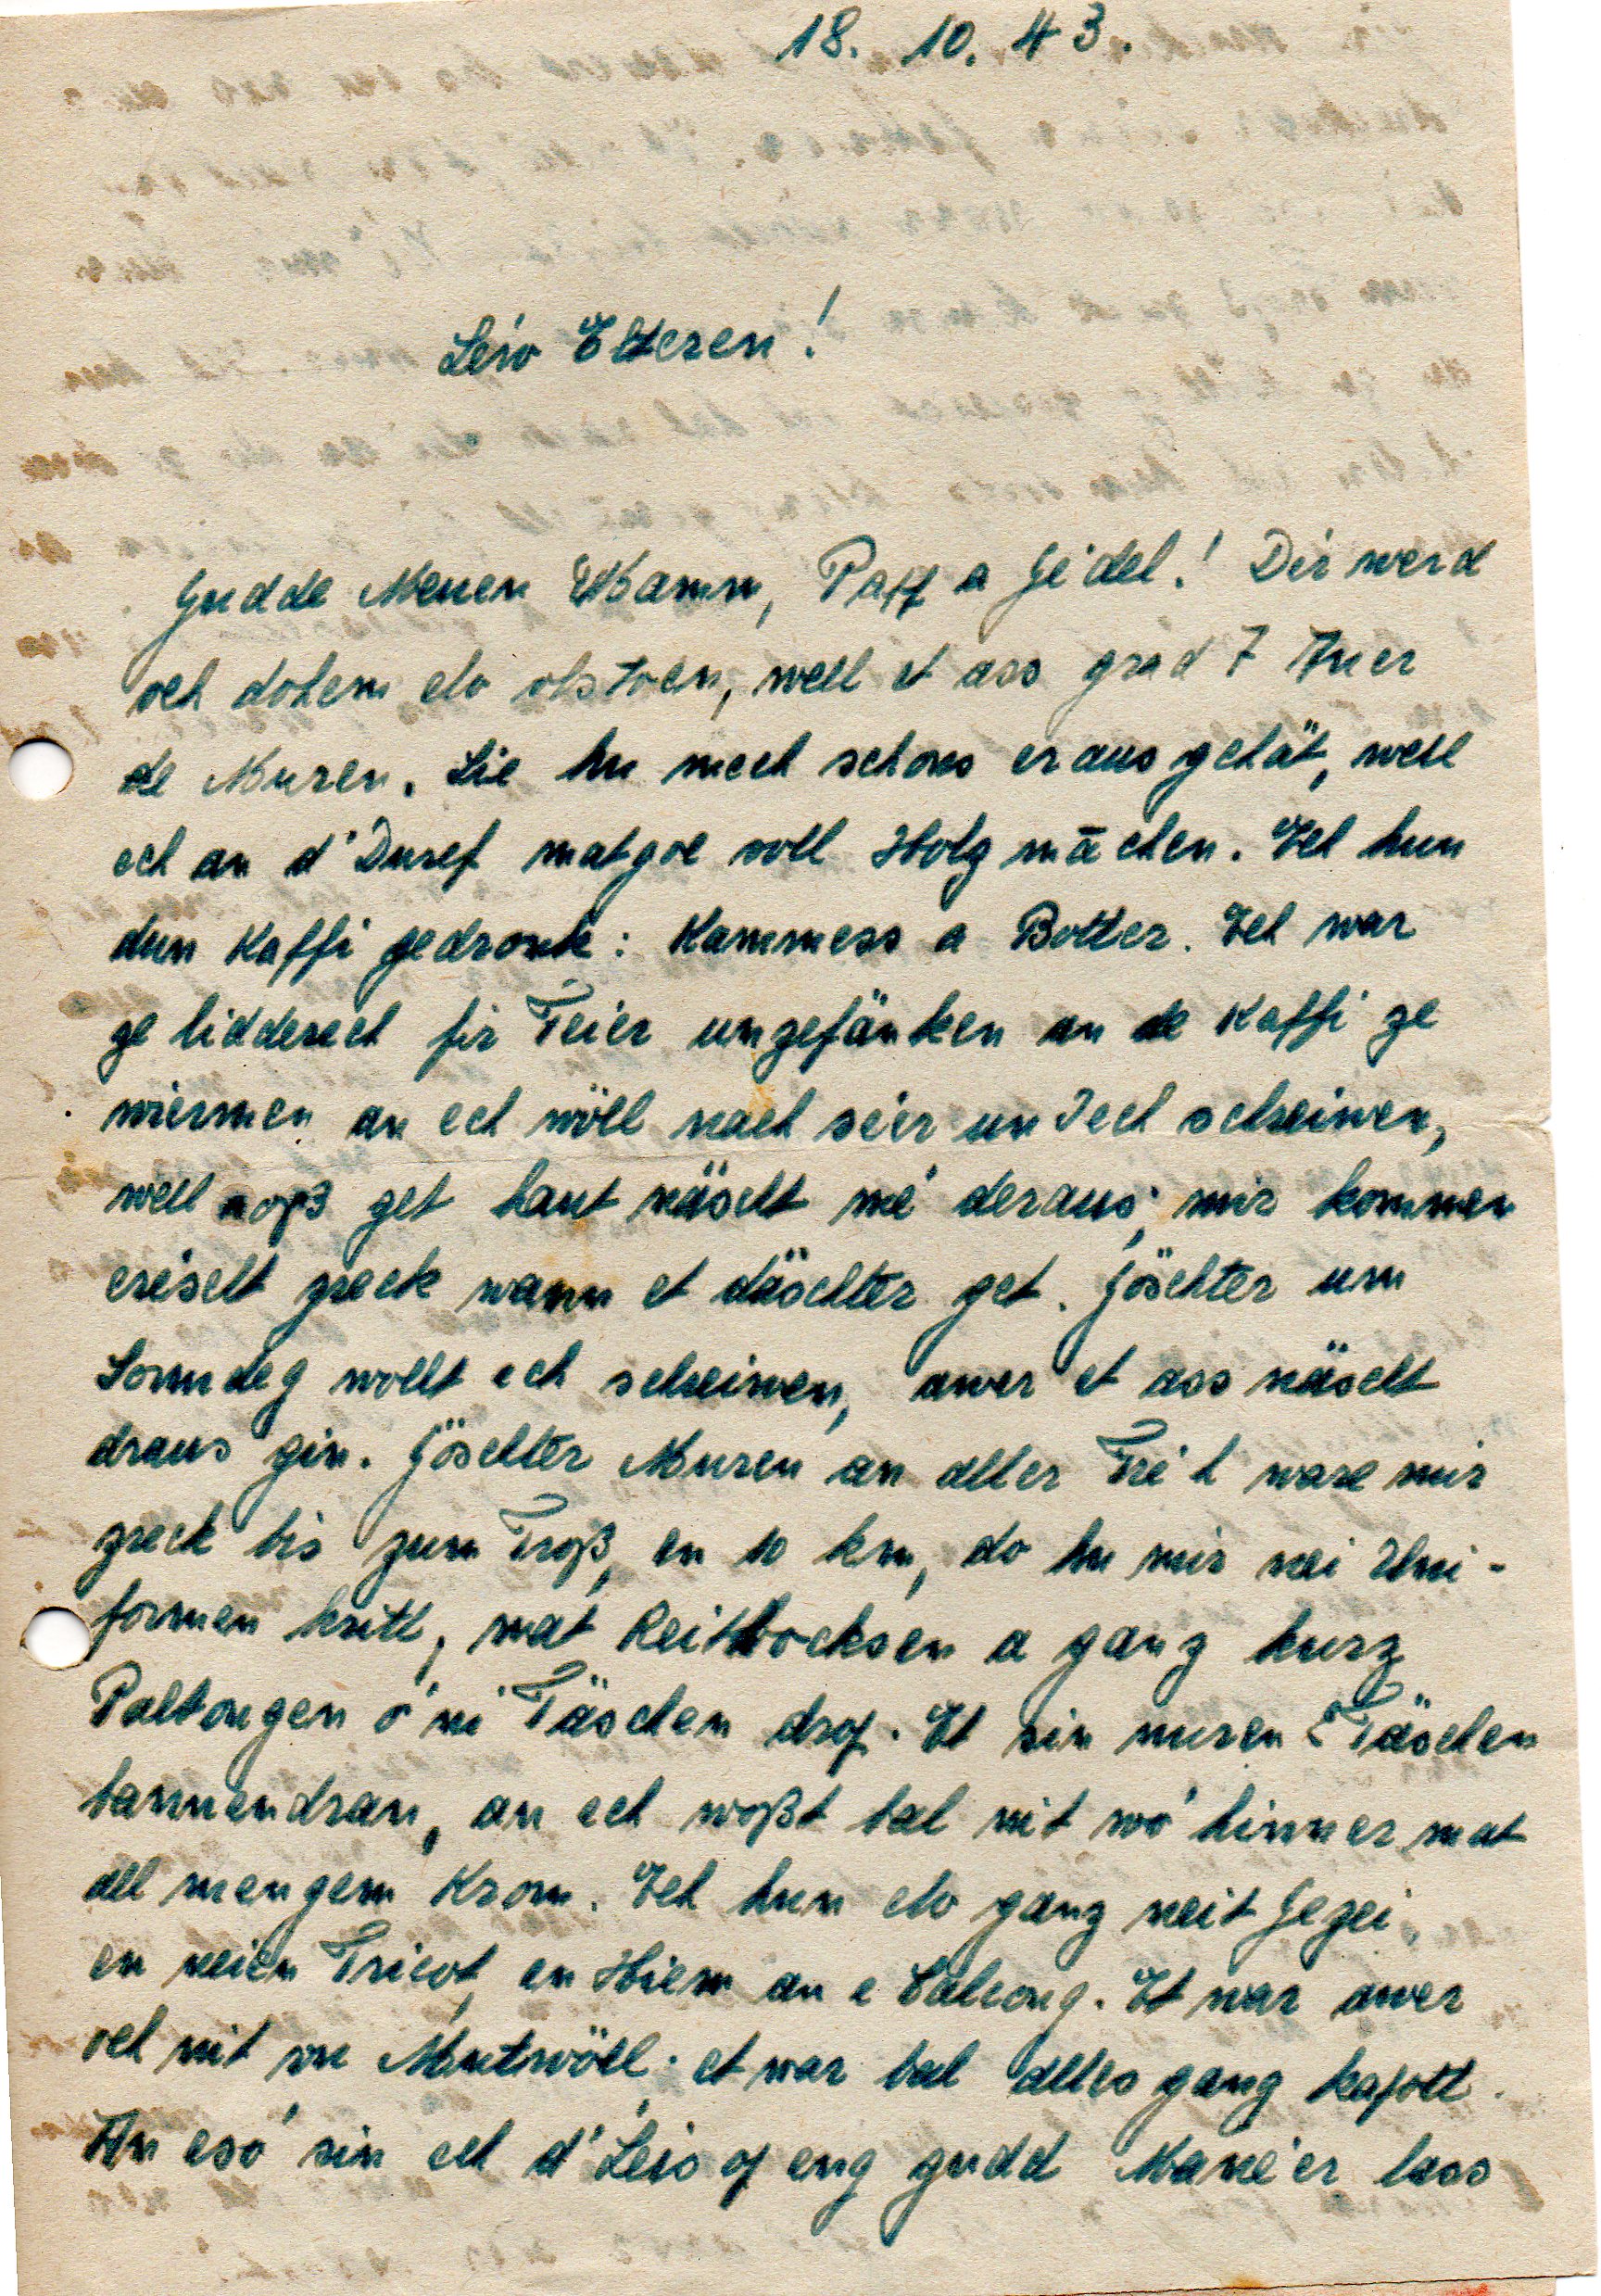 18. 10. 43.
Léiv Elteren!
Gudde Muen Mamm, Papp a Jédel! Dir werd
och dohem elo opstoen, well et ass grad 7 Auer
de Muren. Sie hu mech schons erausgehät, well
ech an d'Duref matgoe soll Holz mächen. Ech hun
dun Kaffi gedronk: Kammess a Botter. Ech war
ze lidderech fir Feier unzefänken an de Kaffi ze
wiermen an ech wöll nach séier un Iech schreiwen,
well soß get haut näscht mé deraus; mir kommen
eréischt zreck wann et däschter get. Göschter um
Sonndeg wollt ech schreiwen, awer et ass näscht
draus gin. Göschter Muren an aller Fréh ware mir
zreck bis zum Troß, en 10 km, do hu mir nei Uni-
formen kritt, mat Reitbocksen a ganz kurz
Paltongen ó ni Täschen drop. Et sin nuren 2 Täschen
bannendran, an ech woßt bal nit wó hinner mat
all mengem Krom. Ech hun elo ganz neit Gezei,
en neien Tricot, en Hiem an e Calsong. Et war awer
och nit vu Mutwöll; et war bal alles gang kapott.
An esó sin ech d'Leis op eng gudd Manéier lass